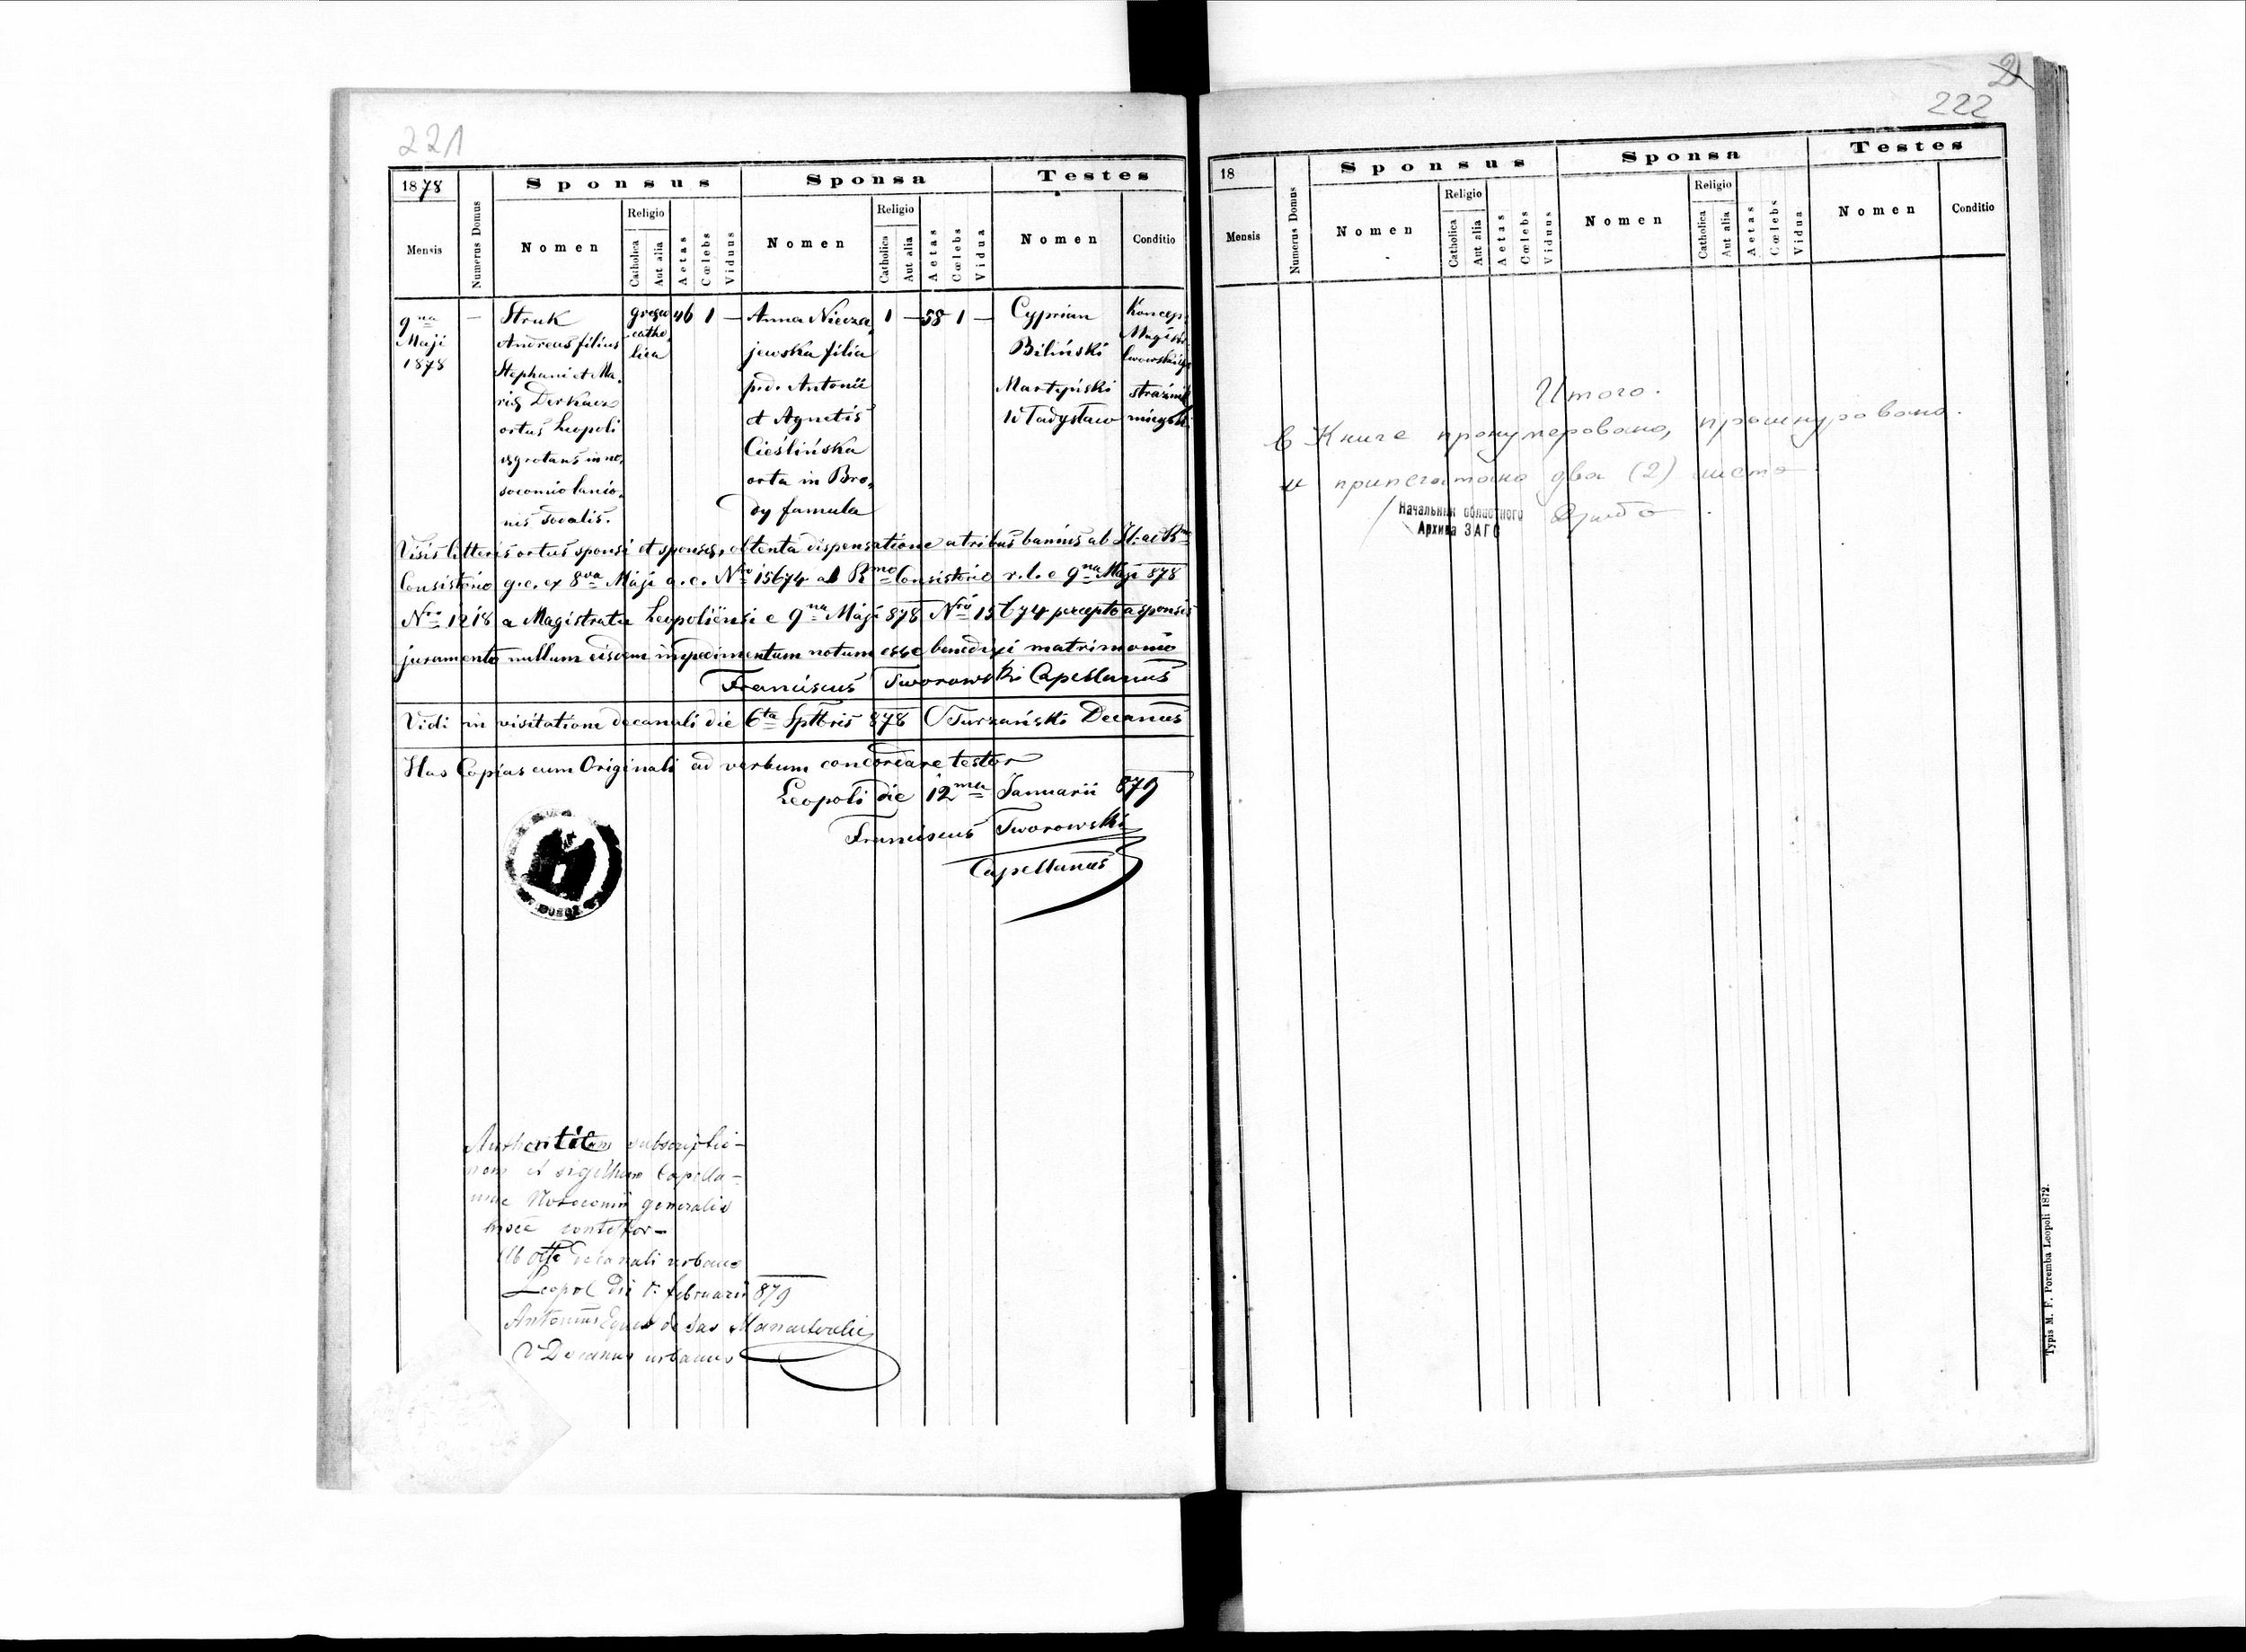 221
1878
Sponsus
Sponsa
Testes
Mensis
Numerus Domus
Nomen
Religio
Catholica
Aut alia
Aetas
Cœlebs
Viduus
Nomen
Religio
Catholica
Aut alia
Aetas
Cœlebs
Vidua
Nomen
Conditio
9na
Maji
1878
—
Struk
Andreas filius
Stephani et Ma
riæ Derkacz
ortus Leopoli
ægrotans in no
socomio lanio
nis socalis.
græco
catho
lica
46
1
—
Anna Niecza
jewska filia
p.d. Antonii
et Agnetis
Cieślińska
orta in Bro
dy famula
1
—
58
1
—
Cyprian
Biliński
Martyński
Władysław
Koncep
Magist
lwowskiego
strażnik
miejski
Visis litteris ortus sponsi et sponsæ, obtenta dispensatione a tribus bannis ab Il. ac Rmo
Consistorio g.c. ex 8va Maji a.c. Nro 15674 ab Rmo Consistorio r.l. e 9na Maji 878
Nro 1218 a Magistratu Leopoliensi e 9na Maji 878 Nro 15674 percepto a sponsis
juramento nullum eisdem impedimentum notum esse benedixi matrimonio
Franciscus Tworowski Capellanus
Vidi in visitatione decanali die 6ta Sptbris 878 OTurzański Decanus
Has Copias cum Originali ad verbum concordare testor
Leopoli die 12ma Januarii 879
Franciscus Tworowski
Capellanus
Authenticam subscriptio-
nem et sigillum Capella-
niae Nosocomii generalis
hisce contestor-
Ab offo decanali urbano
Leopol die 1. februarii 879
Antonius Eques de Sas
V Decanus urbanus
222
18
Sponsus
Sponsa
Testes
Mensis
Numerus Domus
Nomen
Religio
Catholica
Aut alia
Aetas
Cœlebs
Viduus
Nomen
Religio
Catholica
Aut alia
Aetas
Cœlebs
Vidua
Nomen
Conditio
Итого.
в Книге пронумеровано, прошнуровано.
и припечатано два (2) листа
Начальник областного
Архива ЗАГС
Typis M. F. Poremba Leopoli 1872.